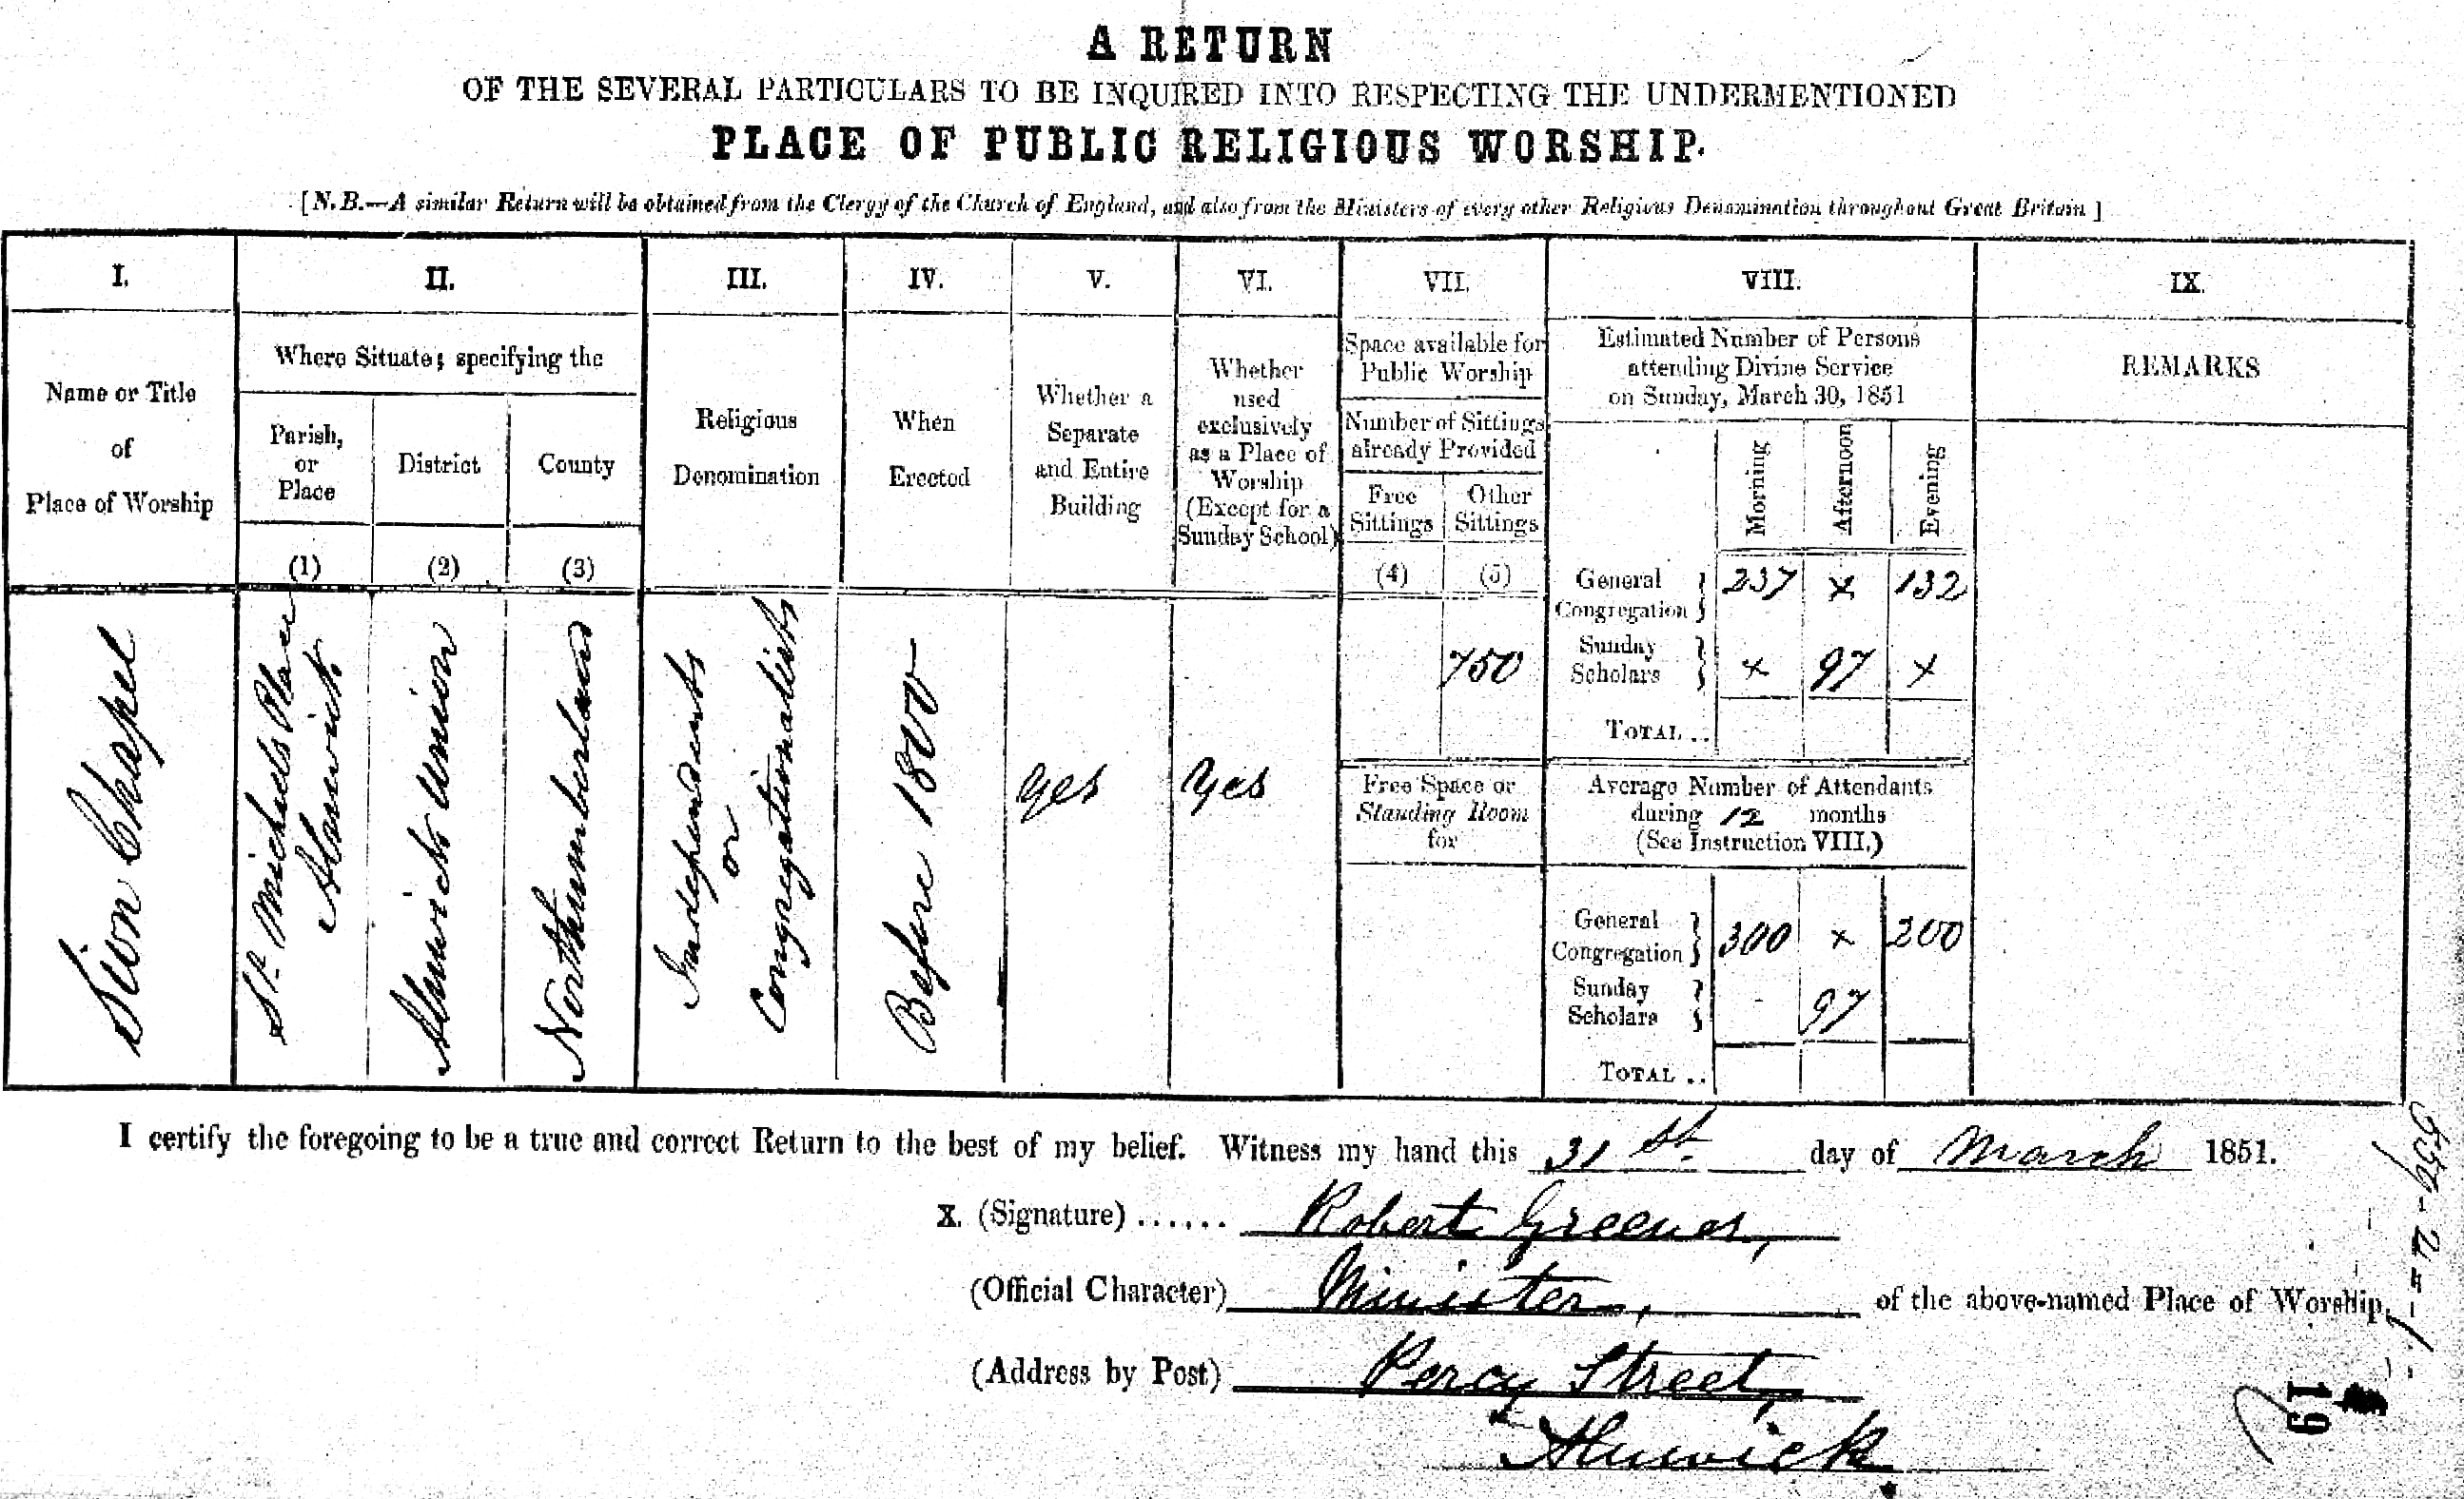 A RETURN
OF THE SEVERAL PARTICULARS TO BE INQUIRED INTO RESPECTING THE UNDERMENTIONED
PLACE OF PUBLIC RELIGIOUS WORSHIP.
[N.B.—A similar Return will be obtained from the Clergy of the Church of England, and also from the Ministers of every other Religious Denomination throughout Great Britain]
I.
II.
III.
IV.
V.
VI.
VII.
VIII.
IX.
Name or Title
of
Place of Worship
Where Situate; specifying the
Parish,
or
Place
(1)
District
(2)
County
(3)
Religious
Denomination
When
Erected
Whether a
Separate
and Entire
Building
Whether
used
exclusively
as a Place of
Worship
(Except for a
Sunday School)
Space available for
Public Worship
Number of Sittings
already Provided
Free
Sittings
(4)
Other
Sittings
(5)
Estimated Number of Persons
attending Divine Service
on Sunday, March 30, 1851
Morning
Afternoon
Evening
REMARKS
Sion Chapel
St. Michaels Place
Alnwick
Alnwick Union
Northumberland
Independents
or
Congregationalists
Before 1800
yes
Yes
750
Free Space or
Standing Room
for
General
Congregation } 237 x 132
Sunday
Scholars } x 97 x
TOTAL ..
Average Number of Attendants
during 12 months
(See Instruction VIII.)
General
Congregation } 300 x 200
Sunday
Scholars } - 97
TOTAL ..
I certify the foregoing to be a true and correct Return to the best of my belief. Witness my hand this 31 st. day of March 1851.
X. (Signature) ...... Robert Greener,
(Official Character) Minister, of the above-named Place of Worship,
(Address by Post) Percy Street,
Alnwick.
19